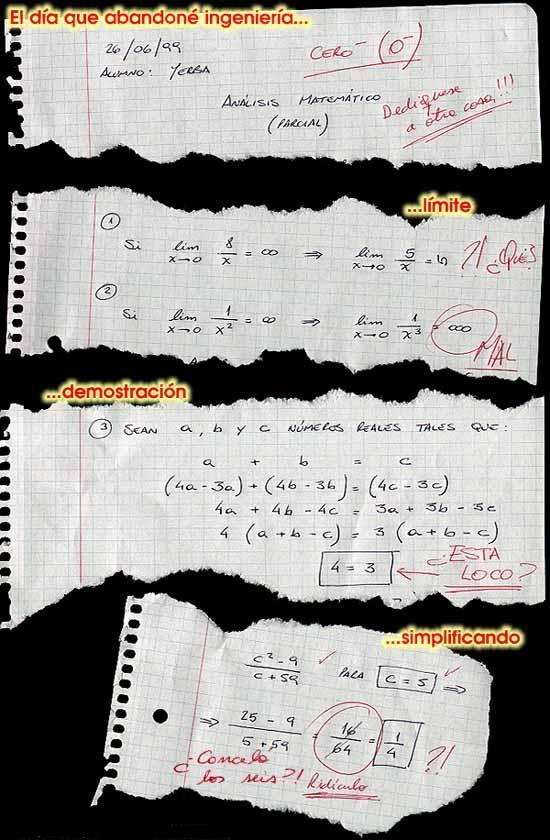 El día que abandoné ingeniería...
26/06/99
CERO⁻ (0⁻)
ALUMNO: YERBA
ANÁLISIS MATEMÁTICO
(PARCIAL)
Dediquese
a otra cosa!!!
...límite
1
Si lim x→0 8/x = ∞ ⇒ lim x→0 5/x = 5 ?! ¿Qué?
2
Si lim x→0 1/x² = ∞ ⇒ lim x→0 1/x³ = ooo
MAL
...demostración
3 SEAN a, b y c NÚMEROS REALES TALES QUE:
a + b = c
(4a-3a) + (4b-3b) = (4c-3c)
4a + 4b - 4c = 3a + 3b - 3c
4 (a+b-c) = 3 (a+b-c)
4 = 3 ← ¿ESTA
LOCO?
...simplificando
c²-9 / c+59 ✓ PARA c=5 ✓ ⇒
⇒ 25-9 / 5+59 = 16/64 = 1/4 ?!
¿Canceló
los seis?! Ridículo